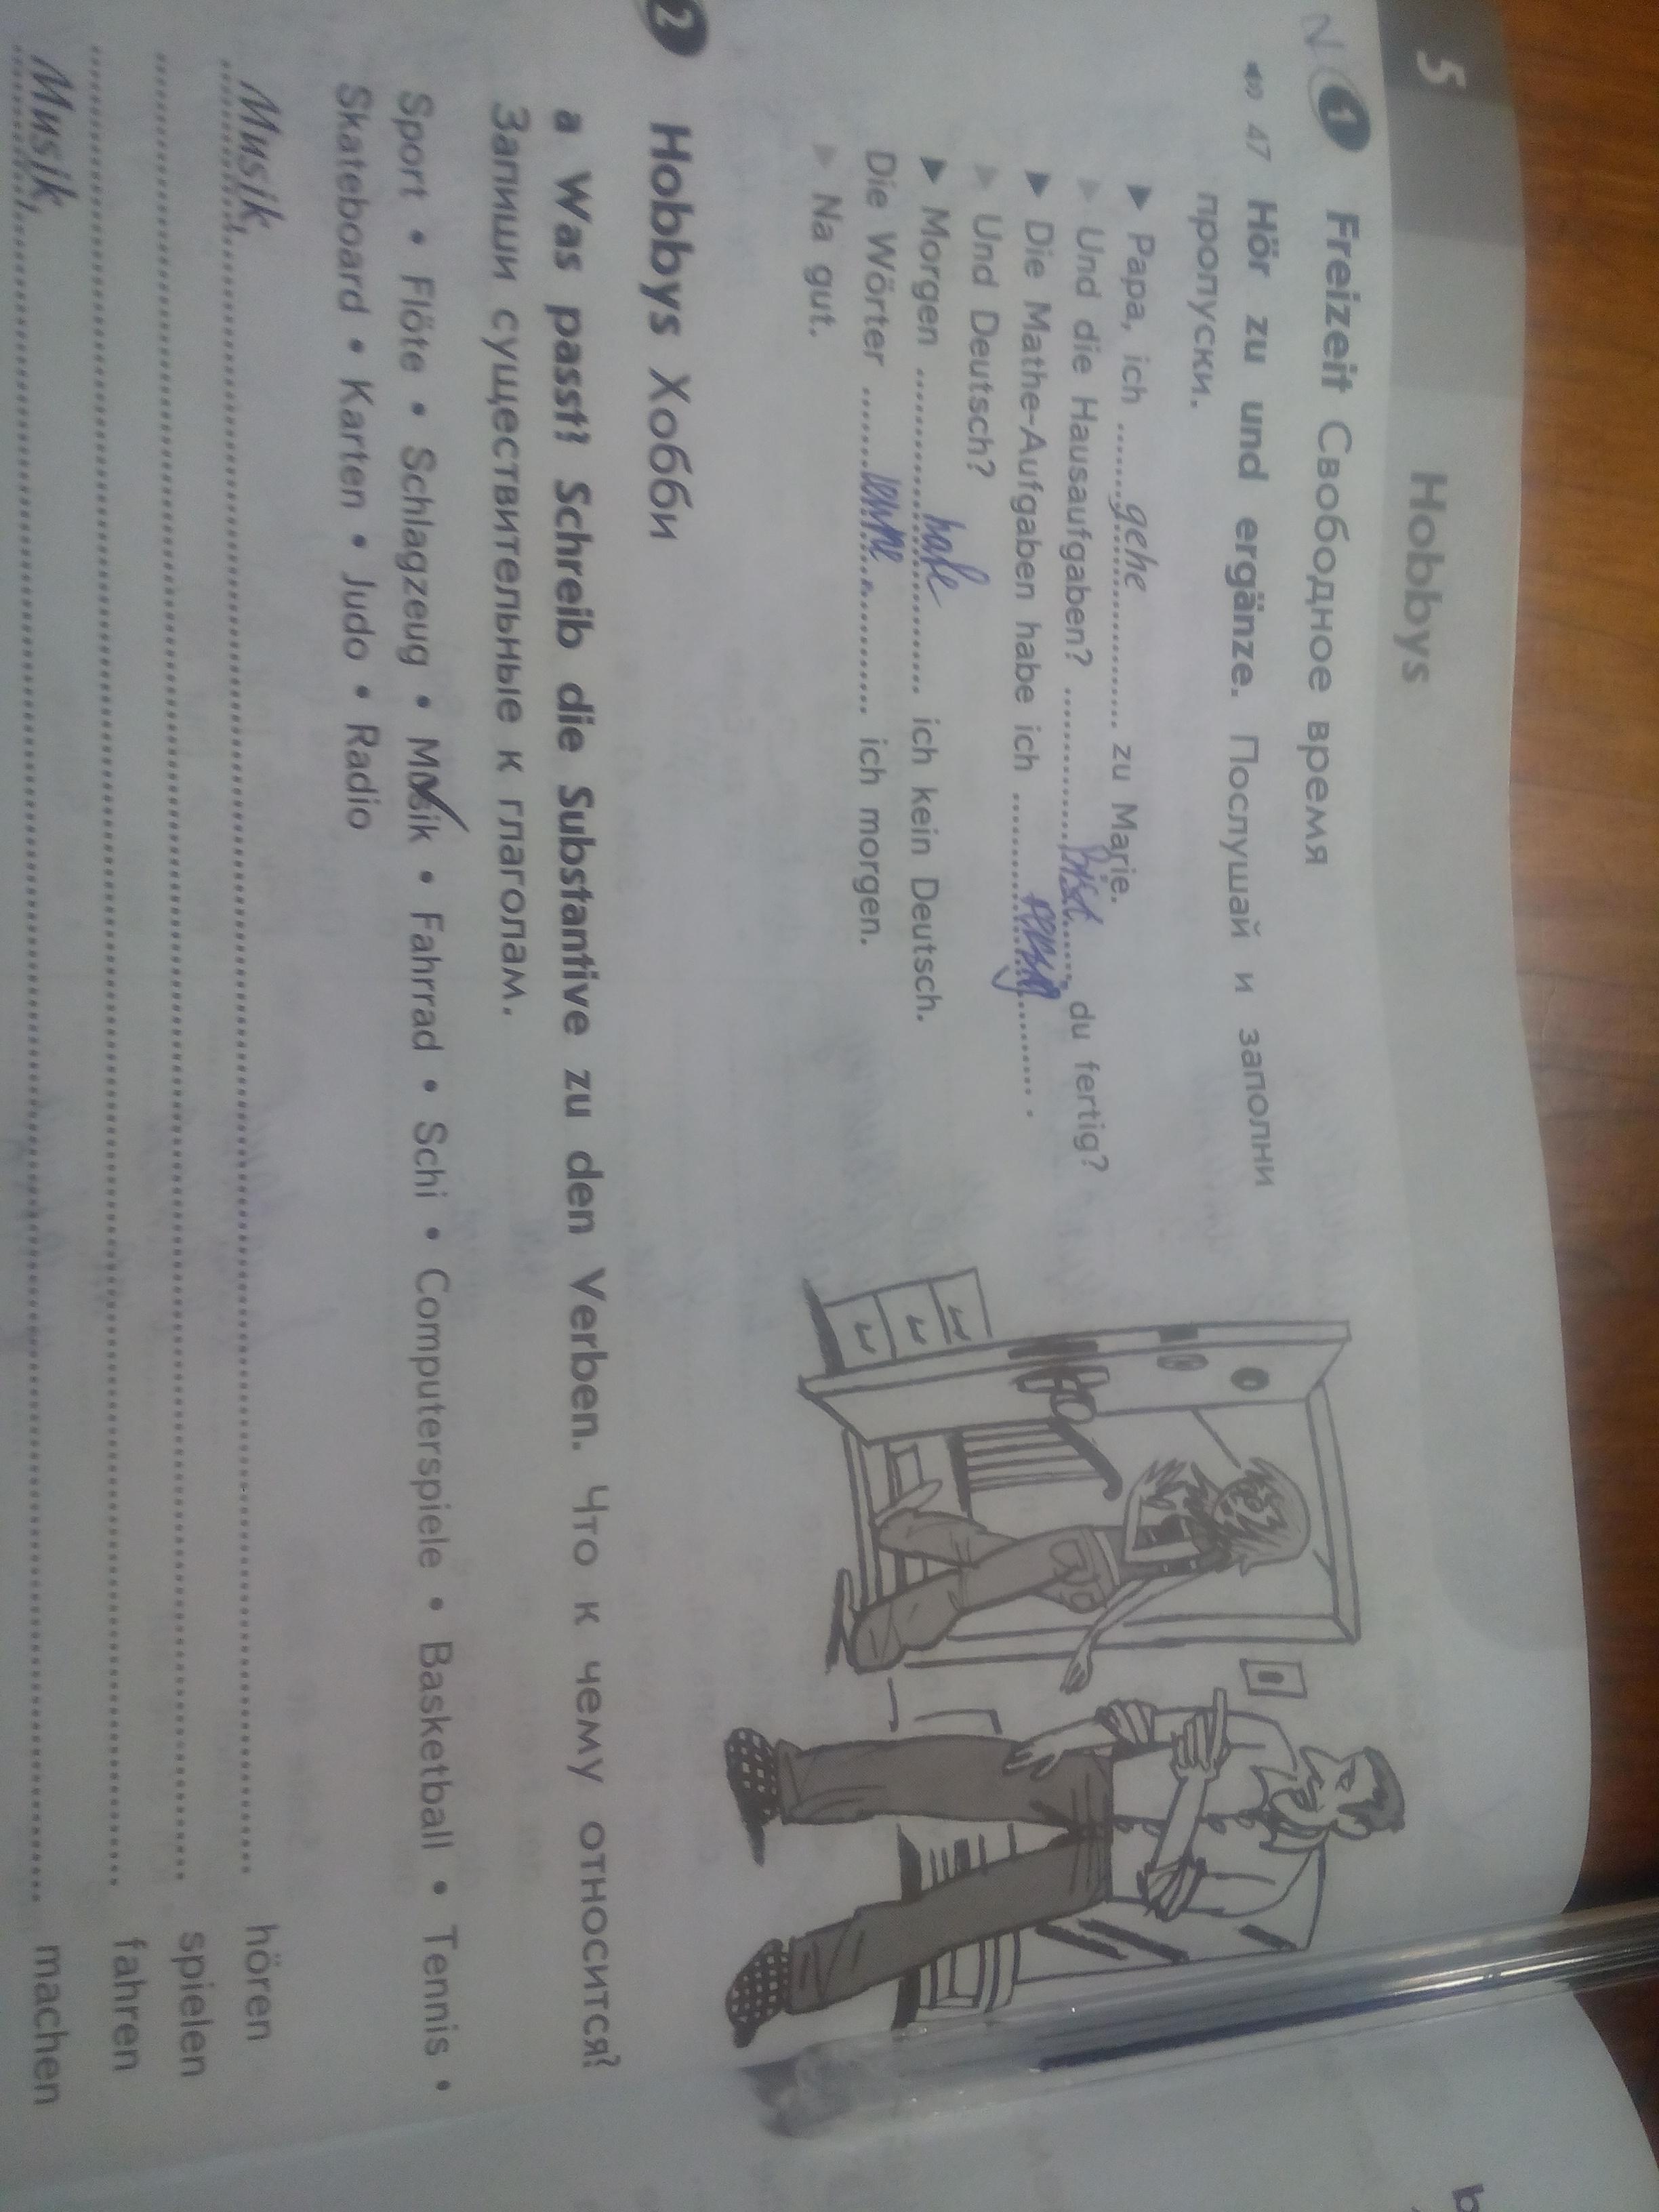 5 Hobbys
1 Freizeit Свободное время
47 Hör zu und ergänze. Послушай и заполни
пропуски.
▶ Papa, ich ......gehe............ zu Marie.
▶ Und die Hausaufgaben? ............bist......, du fertig?
▶ Die Mathe-Aufgaben habe ich .................... .
▶ Und Deutsch?
▶ Morgen ............habe............ ich kein Deutsch.
Die Wörter ......lerne............ ich morgen.
▶ Na gut.
2 Hobbys Хобби
a Was passt? Schreib die Substantive zu den Verben. Что к чему относится?
Запиши существительные к глаголам.
Sport • Flöte • Schlagzeug • Musik • Fahrrad • Schi • Computerspiele • Basketball • Tennis •
Skateboard • Karten • Judo • Radio
Musik, .................... hören
.................... spielen
.................... fahren
Musik, .................... machen
b